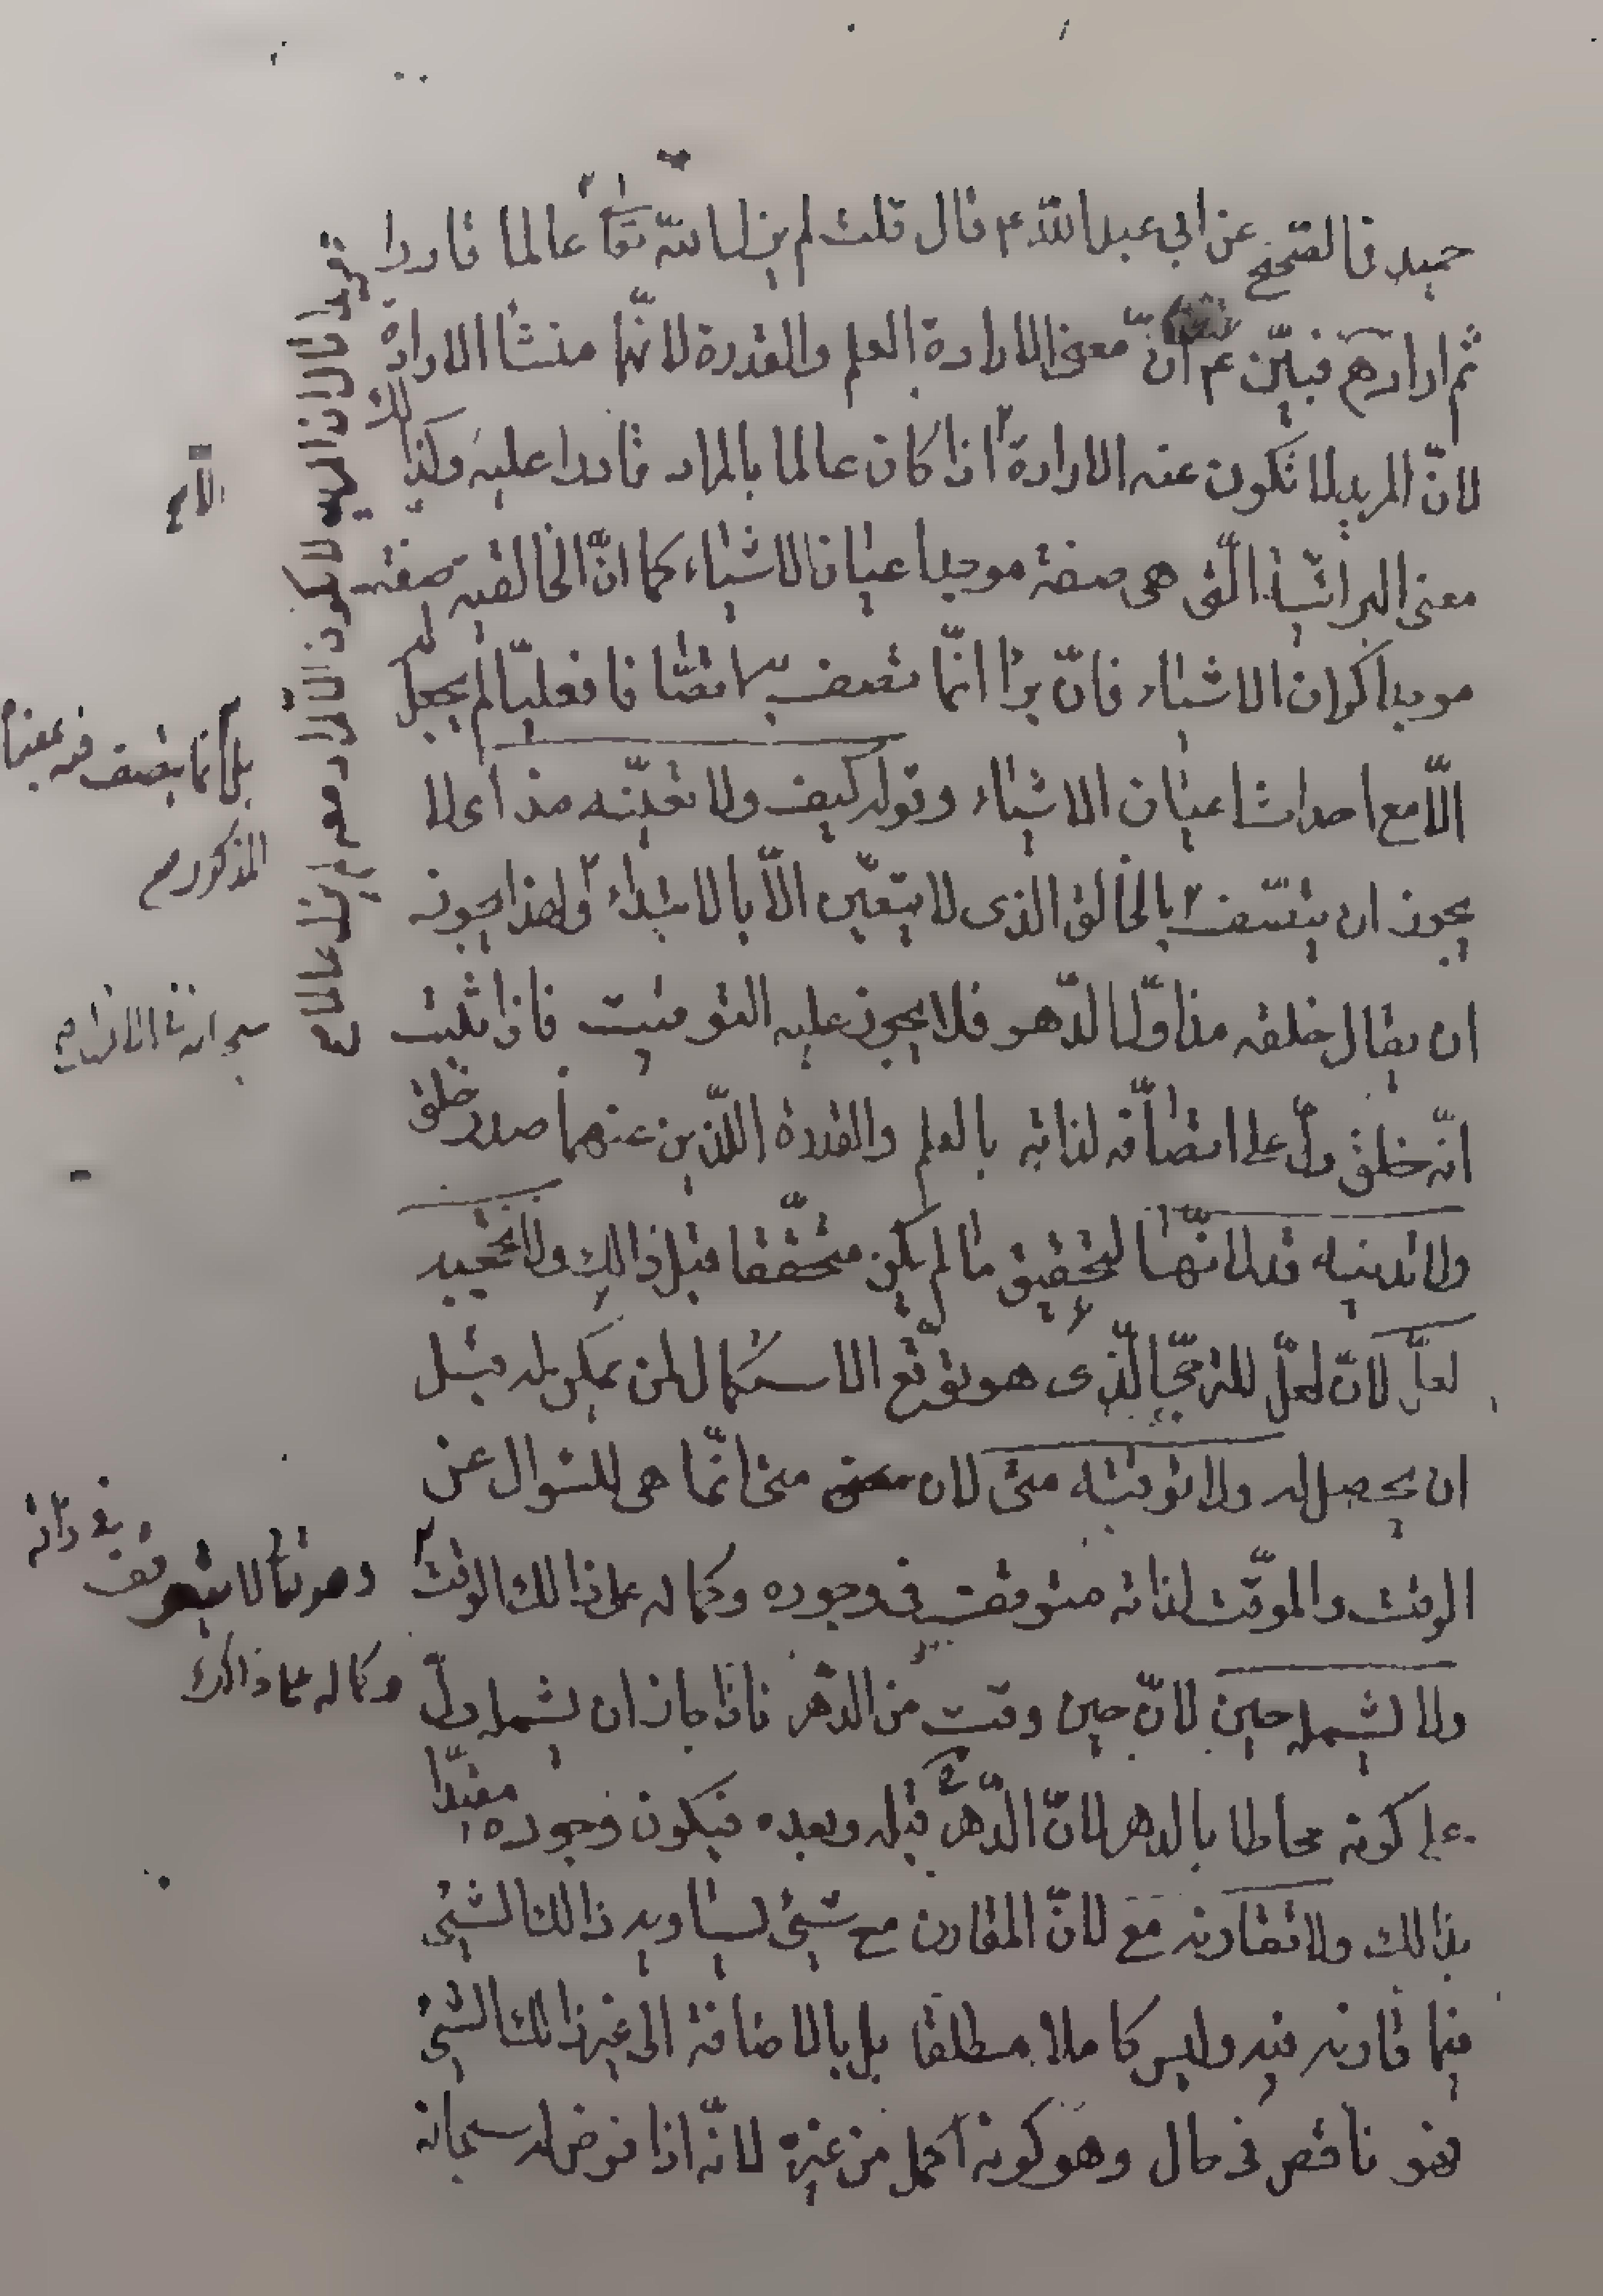 حميد في الصحيح عن ابي عبد الله ع قال قلت لم يزل الله تعا عالما قادرا
ثم اراد هم فبيّن ع انّ معنى الارادة العلم والقدرة لانّهما منشأ الارادة
لانّ المريد لما تكون عنه الارادة اذا كان عالما بالمراد قادرا عليه وكذلك
معنى البرائيّة الّتى هى صفة موجد اعيان الاشياء كما انّ الخالقية صفة
موجد اكوان الاشياء فانّ برا انّما تصف به اتصافا فعليّا لم يجعل له
الّا مع احداث اعيان الاشياء وقوله كيف ولا تغيّبه مذ اى لا
يجوز ان يتّصف بالخالق الذى لا يتعيّن الّا بالابتداء ولهذا يجوز
ان يقال خلقه مذ اوّل الدّهر فلا يجوز عليه التوقيت فاذا ثبت
انّه خلق دلّ على اتصافه لذاته بالعلم والقدرة اللّذين عنهما صدر خلق
ولا تدنيه قد لانّها لتحقيق ما لم يكن متحقّقا قبل ذالك ولا تحجبه
لعلّ لانّ لعلّ للترجّي الّذى هو توقّع الاستكمال لمن يمكن له قبل
ان يحصل له ولا توقته متى لان متى انّما هى للسؤال عن
الوقت والموقّت لذاته متوقف فى وجوده وكماله على ذالك الوقت
ولا تشمله حين لانّ حين وقت من الدّهر فاذا جاز ان تشمله دلّ
على كونه محاطا بالدهر لانّ الدّهر قبله وبعده فيكون وجوده مقيّدا
بذالك ولا تقارنه مع لانّ المقارن مع شيئ يساويه ذالك الشيئ
فيما قارنه فيه وليس كاملا مطلقا بل بالاضافة الى غير ذالك الشيئ
فهو ناقص فى حال وهو كونه اكمل من غيره لانّه اذا فرض له سبحانه
مريدا قال ان المريد لا يكون الا لمراد معه لم يزل عالما
بل انما يتصف فيه بمعنى
المذكور
سبحانه
وهو تعا لا يتوقف فى ذاته
وكماله على ذالك